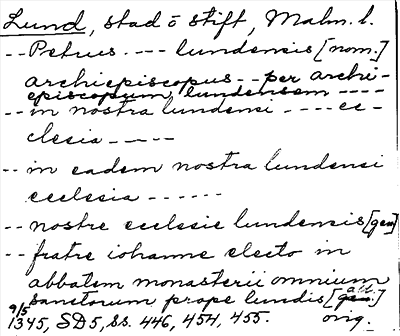 Lund, stad o stift, Malm. l.
-- Petrus. --- lundensis [nom.]
archiepiscopus -- per archi-
episcopum lundensem ----
-- in nostra lundensi ---- ec-
clesia -----
-- in eadem nostra lundensi
ecclesia ------
-- nostre ecclesie lundensis [gen]
-- fratre iohanne electo in
abbatem monasterii omnium
sanctorum prope lundis [gen. abl.]
9/5 1345, SD5, ss. 446, 454, 455. orig.